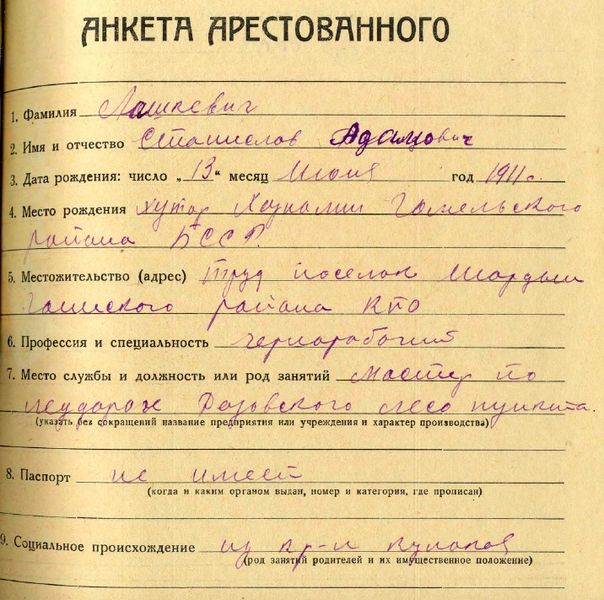 АНКЕТА АРЕСТОВАННОГО
1. Фамилия Лашкевич
2. Имя и отчество Станислав Адамович
3. Дата рождения: число „13“ месяц Июня год 1911 г.
4. Место рождения хутор Гомельского
района БССР
5. Местожительство (адрес) Труд поселок
района КПО
6. Профессия и специальность чернорабочий
7. Место службы и должность или род занятий мастер по
лесо пункта.
(указать без сокращений название предприятия или учреждения и характер производства)
8. Паспорт не имеет
(когда и каким органом выдан, номер и категория, где прописан)
9. Социальное происхождение из кр-н кулаков
(род занятий родителей и их имущественное положение)